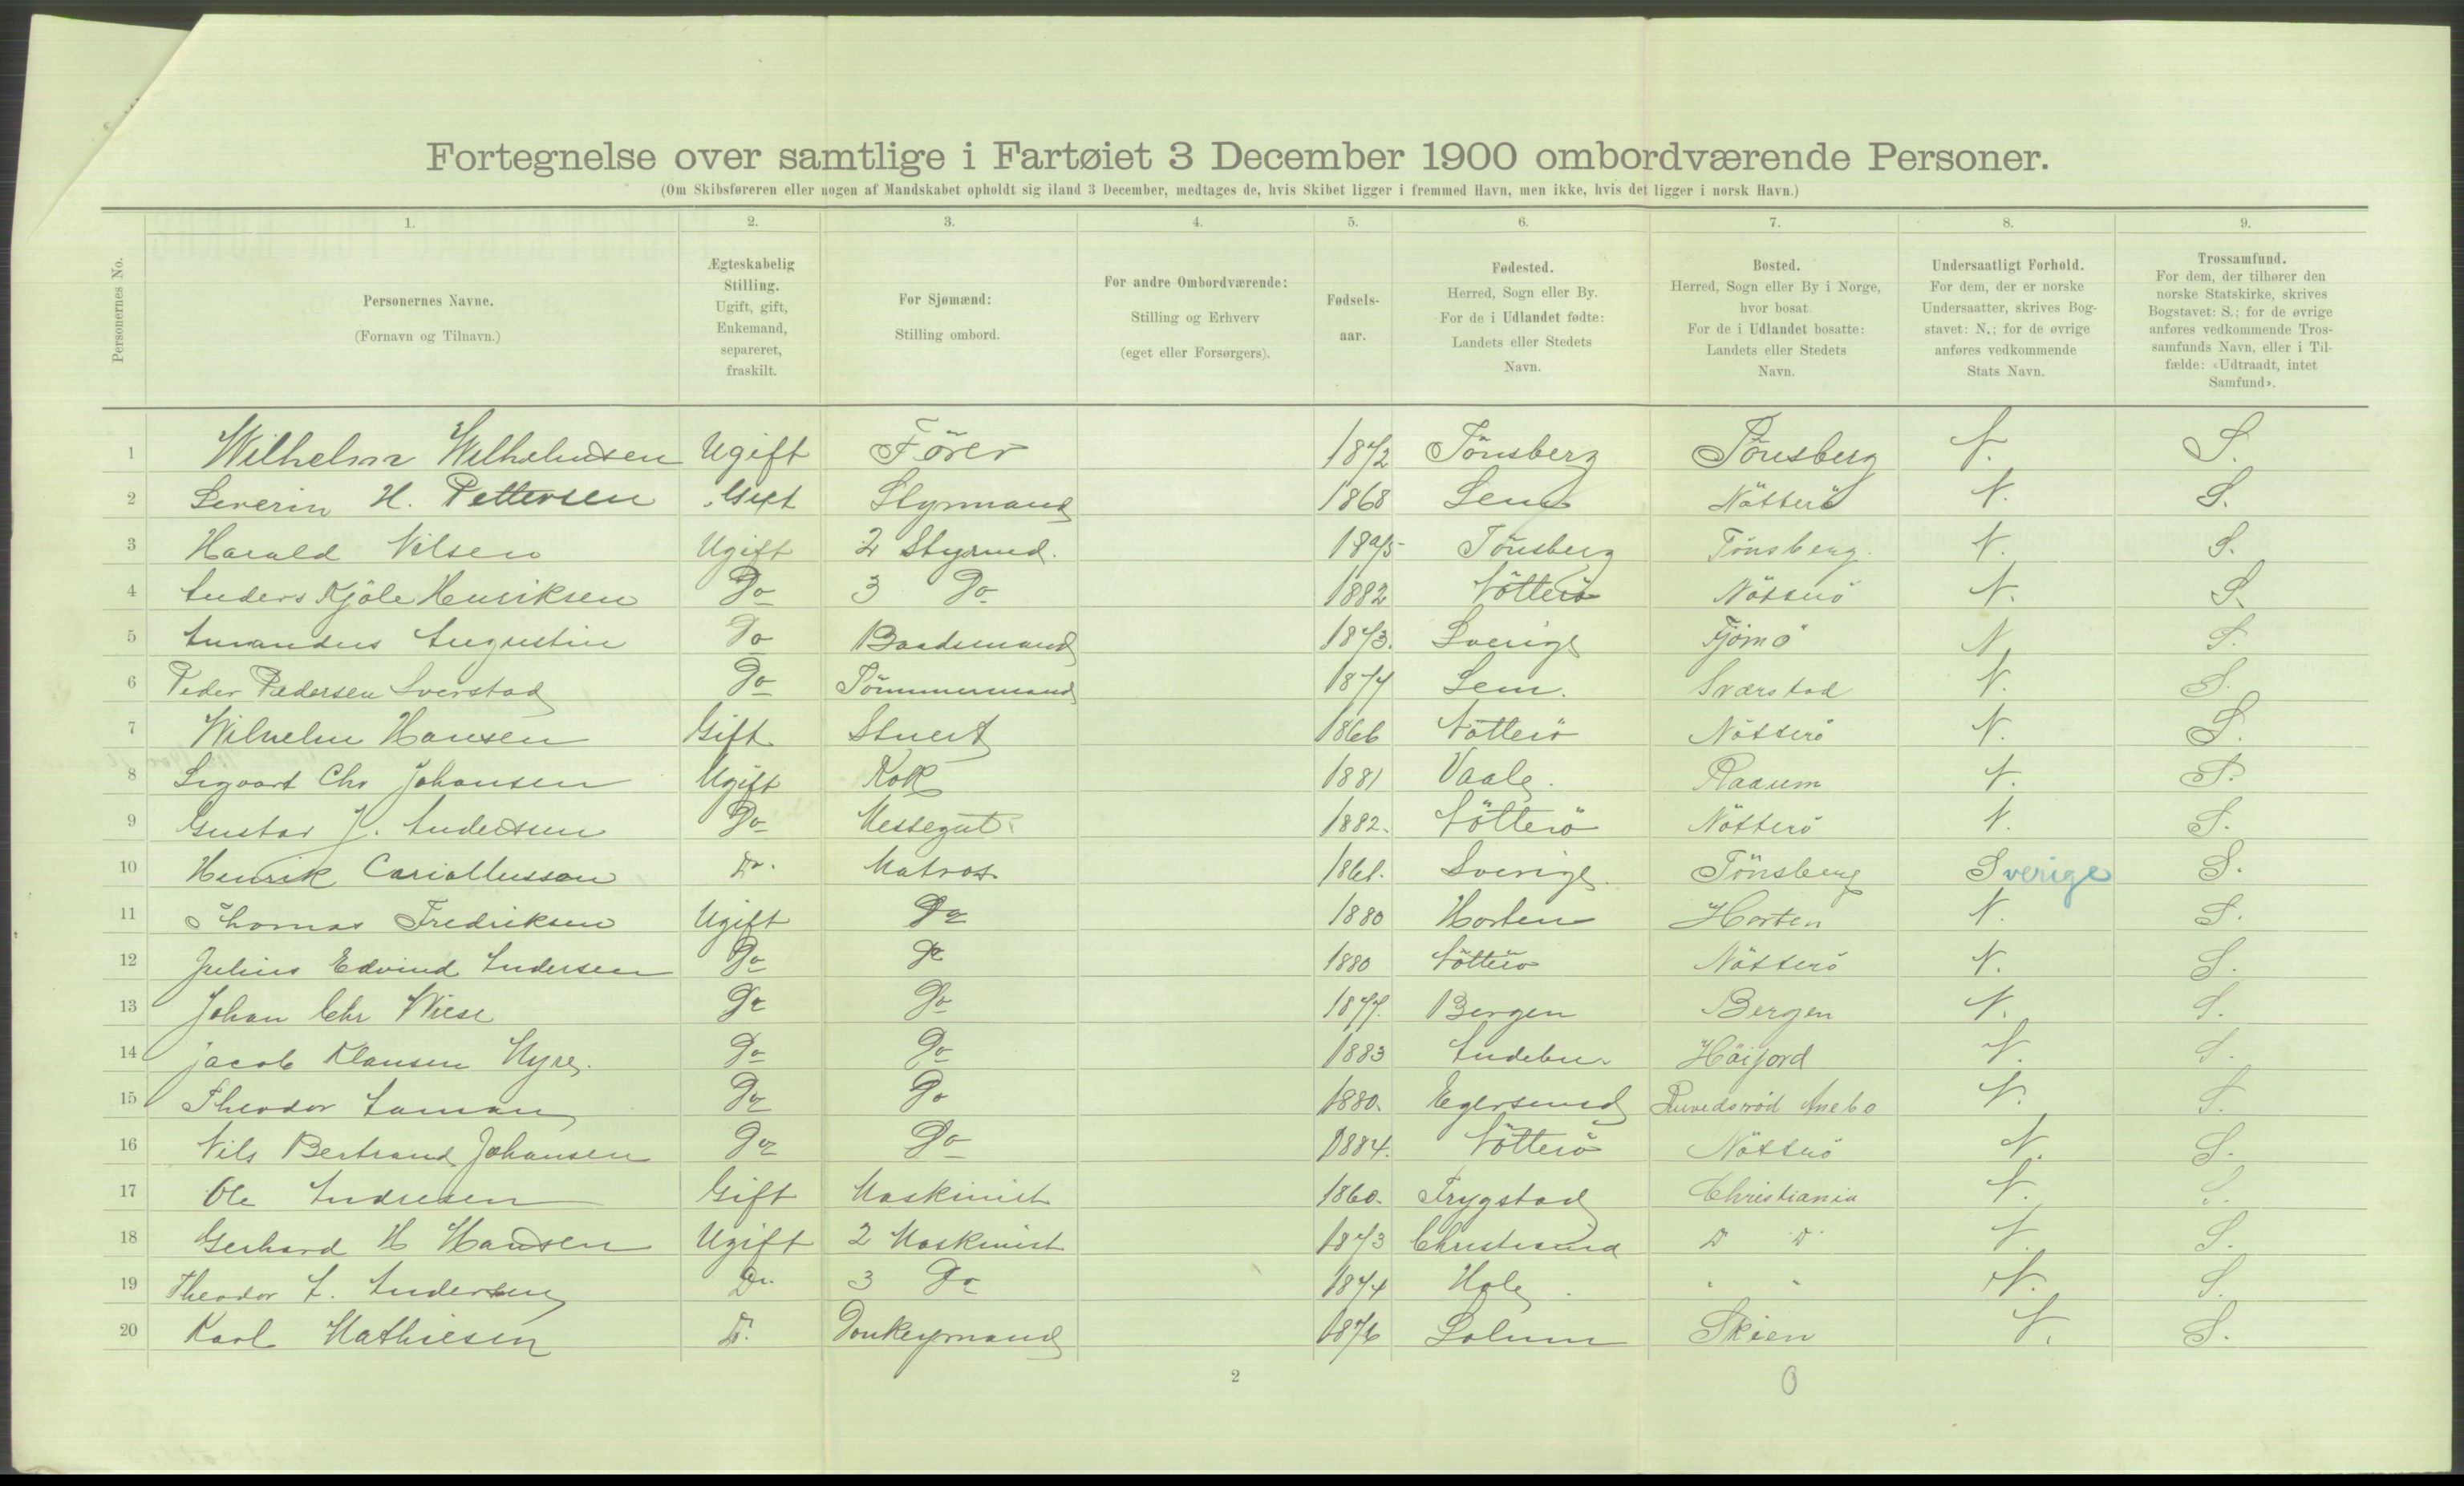 Fortegnelse over samtlige i Fartøiet 3 December 1900 ombordværende Personer.
(Om Skibsføreren eller nogen af Mandskabet opholdt sig iland 3 December, medtages de, hvis Skibet ligger i fremmed Havn, men ikke, hvis det ligger i norsk Havn.)
Personernes No.
1. 2. 3. 4. 5. 6. 7. 8. 9.
Personernes Navne.
(Fornavn og Tilnavn.)
Ægteskabelig
Stilling.
Ugift, gift,
Enkemand,
separeret,
fraskilt.
For Sjømænd:
Stilling ombord.
For andre Ombordværende:
Stilling og Erhverv
(eget eller Forsørgers).
Fødsels-
aar.
Fødested.
Herred, Sogn eller By.
For de i Udlandet fødte:
Landets eller Stedets
Navn.
Bosted.
Herred, Sogn eller By i Norge,
hvor bosat
For de i Udlandet bosatte:
Landets eller Stedets
Navn.
Undersaatligt Forhold.
For dem, der er norske
Undersaatter, skrives Bog-
stavet: N.; for de øvrige
anføres vedkommende
Stats Navn.
Trossamfund.
For dem, der tilhører den
norske Statskirke, skrives
Bogstavet: S.; for de øvrige
anføres vedkommende Tros-
samfunds Navn, eller i Til-
fælde: «Udtraadt, intet
Samfund».
1 Wilhelm Wilhelmsen Ugift Förer 1872 Tönsberg Tönsberg N. S.
2 Severin H. Pettersen Gift Styrmand 1868 Sem Nötterö N. S.
3 Harald Nilsen Ugift 2 Styrmd. 1875 Tönsberg Tönsberg. N. S.
4 Anders Kjöle Henriksen Do 3 Do 1882 Nötterö Nötterö N. S.
5 Amandus Augustin Do Baadsmand 1873. Sverige Tjömö N S.
6 Peder Pedersen Sverstad Do Tömmermand 1874 Sem. Sværstad N. S.
7 Wilhelm Hansen Gift Stuert 1866 Nötterö Nötterö N. S.
8 Sigvart Chr Johansen Ugift Kok Vaale. 1881 Raaum N. S.
9 Gustav J. Andersen Do Messegut. 1882. Nötterö Nötterö N. S.
10 Henrik Do. Matros 1861. Sverige. Tönsberg Sverige S.
11 Thomas Fredriksen Ugift Do 1880 Horten Horten N. S.
12 Julius Edvind Andersen Do Do 1880 Nötterö Nötterö N. S.
13 Johan Chr Wiese Do Do 1877. Bergen Bergen N. S.
14 Jacob Klausen Myre. Do Do 1883 Andebu Höijord N. S.
15 Theodor Aaman Do Do 1880. Egersund Anebo N. S.
16 Nils Bertrand Johansen Do Do 1884. Nötterö Nötterö N. S.
17 Ole Andresen Gift Maskinist 1860. Trygstad Christiania N. S.
18 Gerhard H Hansen Ugift 2 Maskinist 1873 Christiania D D N. S.
19 Theodor A. Andersen Do. 3 Do 1874 Hole. " " N. S.
20 Karl Mathiesen D. Donkeymand 1876 Solum Skien N. S.
2 0